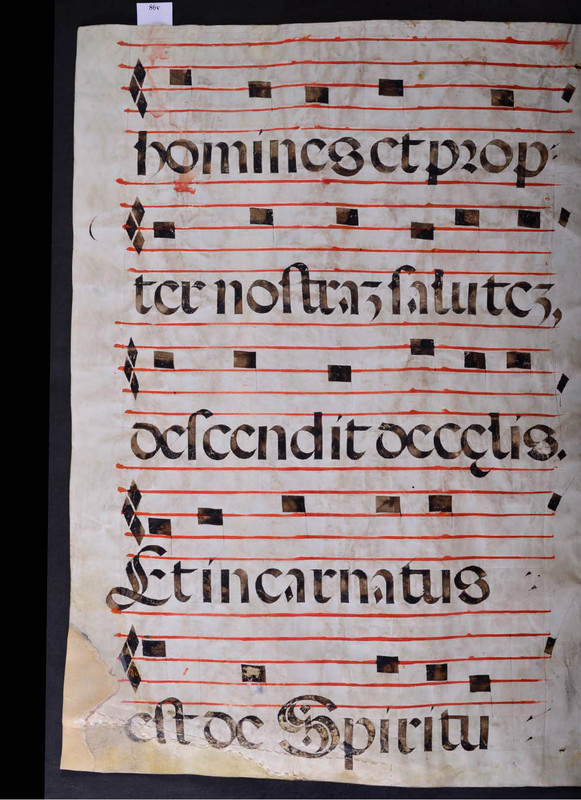 86v
homines et prop
ter nostraʒ saluteʒ,
descendit de cęlis.
Et incarnatus
est de Spiritu